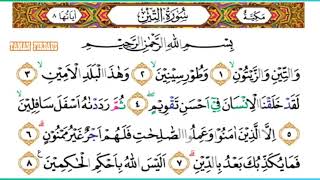 مكية سورة التين آياتها ٨
TAMAN TERBARU
بِسْمِ اللّٰهِ الرَّحْمٰنِ الرَّحِيْمِ
وَالتِّيْنِ وَالزَّيْتُوْنِۙ ١ وَطُوْرِ سِيْنِيْنَۙ ٢ وَهٰذَا الْبَلَدِ الْاَمِيْنِۙ ٣
لَقَدْ خَلَقْنَا الْاِنْسَانَ فِيْٓ اَحْسَنِ تَقْوِيْمٍۖ ٤ ثُمَّ رَدَدْنٰهُ اَسْفَلَ سَافِلِيْنَۙ
٥ اِلَّا الَّذِيْنَ اٰمَنُوْا وَعَمِلُوا الصّٰلِحٰتِ فَلَهُمْ اَجْرٌ غَيْرُ مَمْنُوْنٍۗ ٦
فَمَا يُكَذِّبُكَ بَعْدُ بِالدِّيْنِۗ ٧ اَلَيْسَ اللّٰهُ بِاَحْكَمِ الْحٰكِمِيْنَ ٨